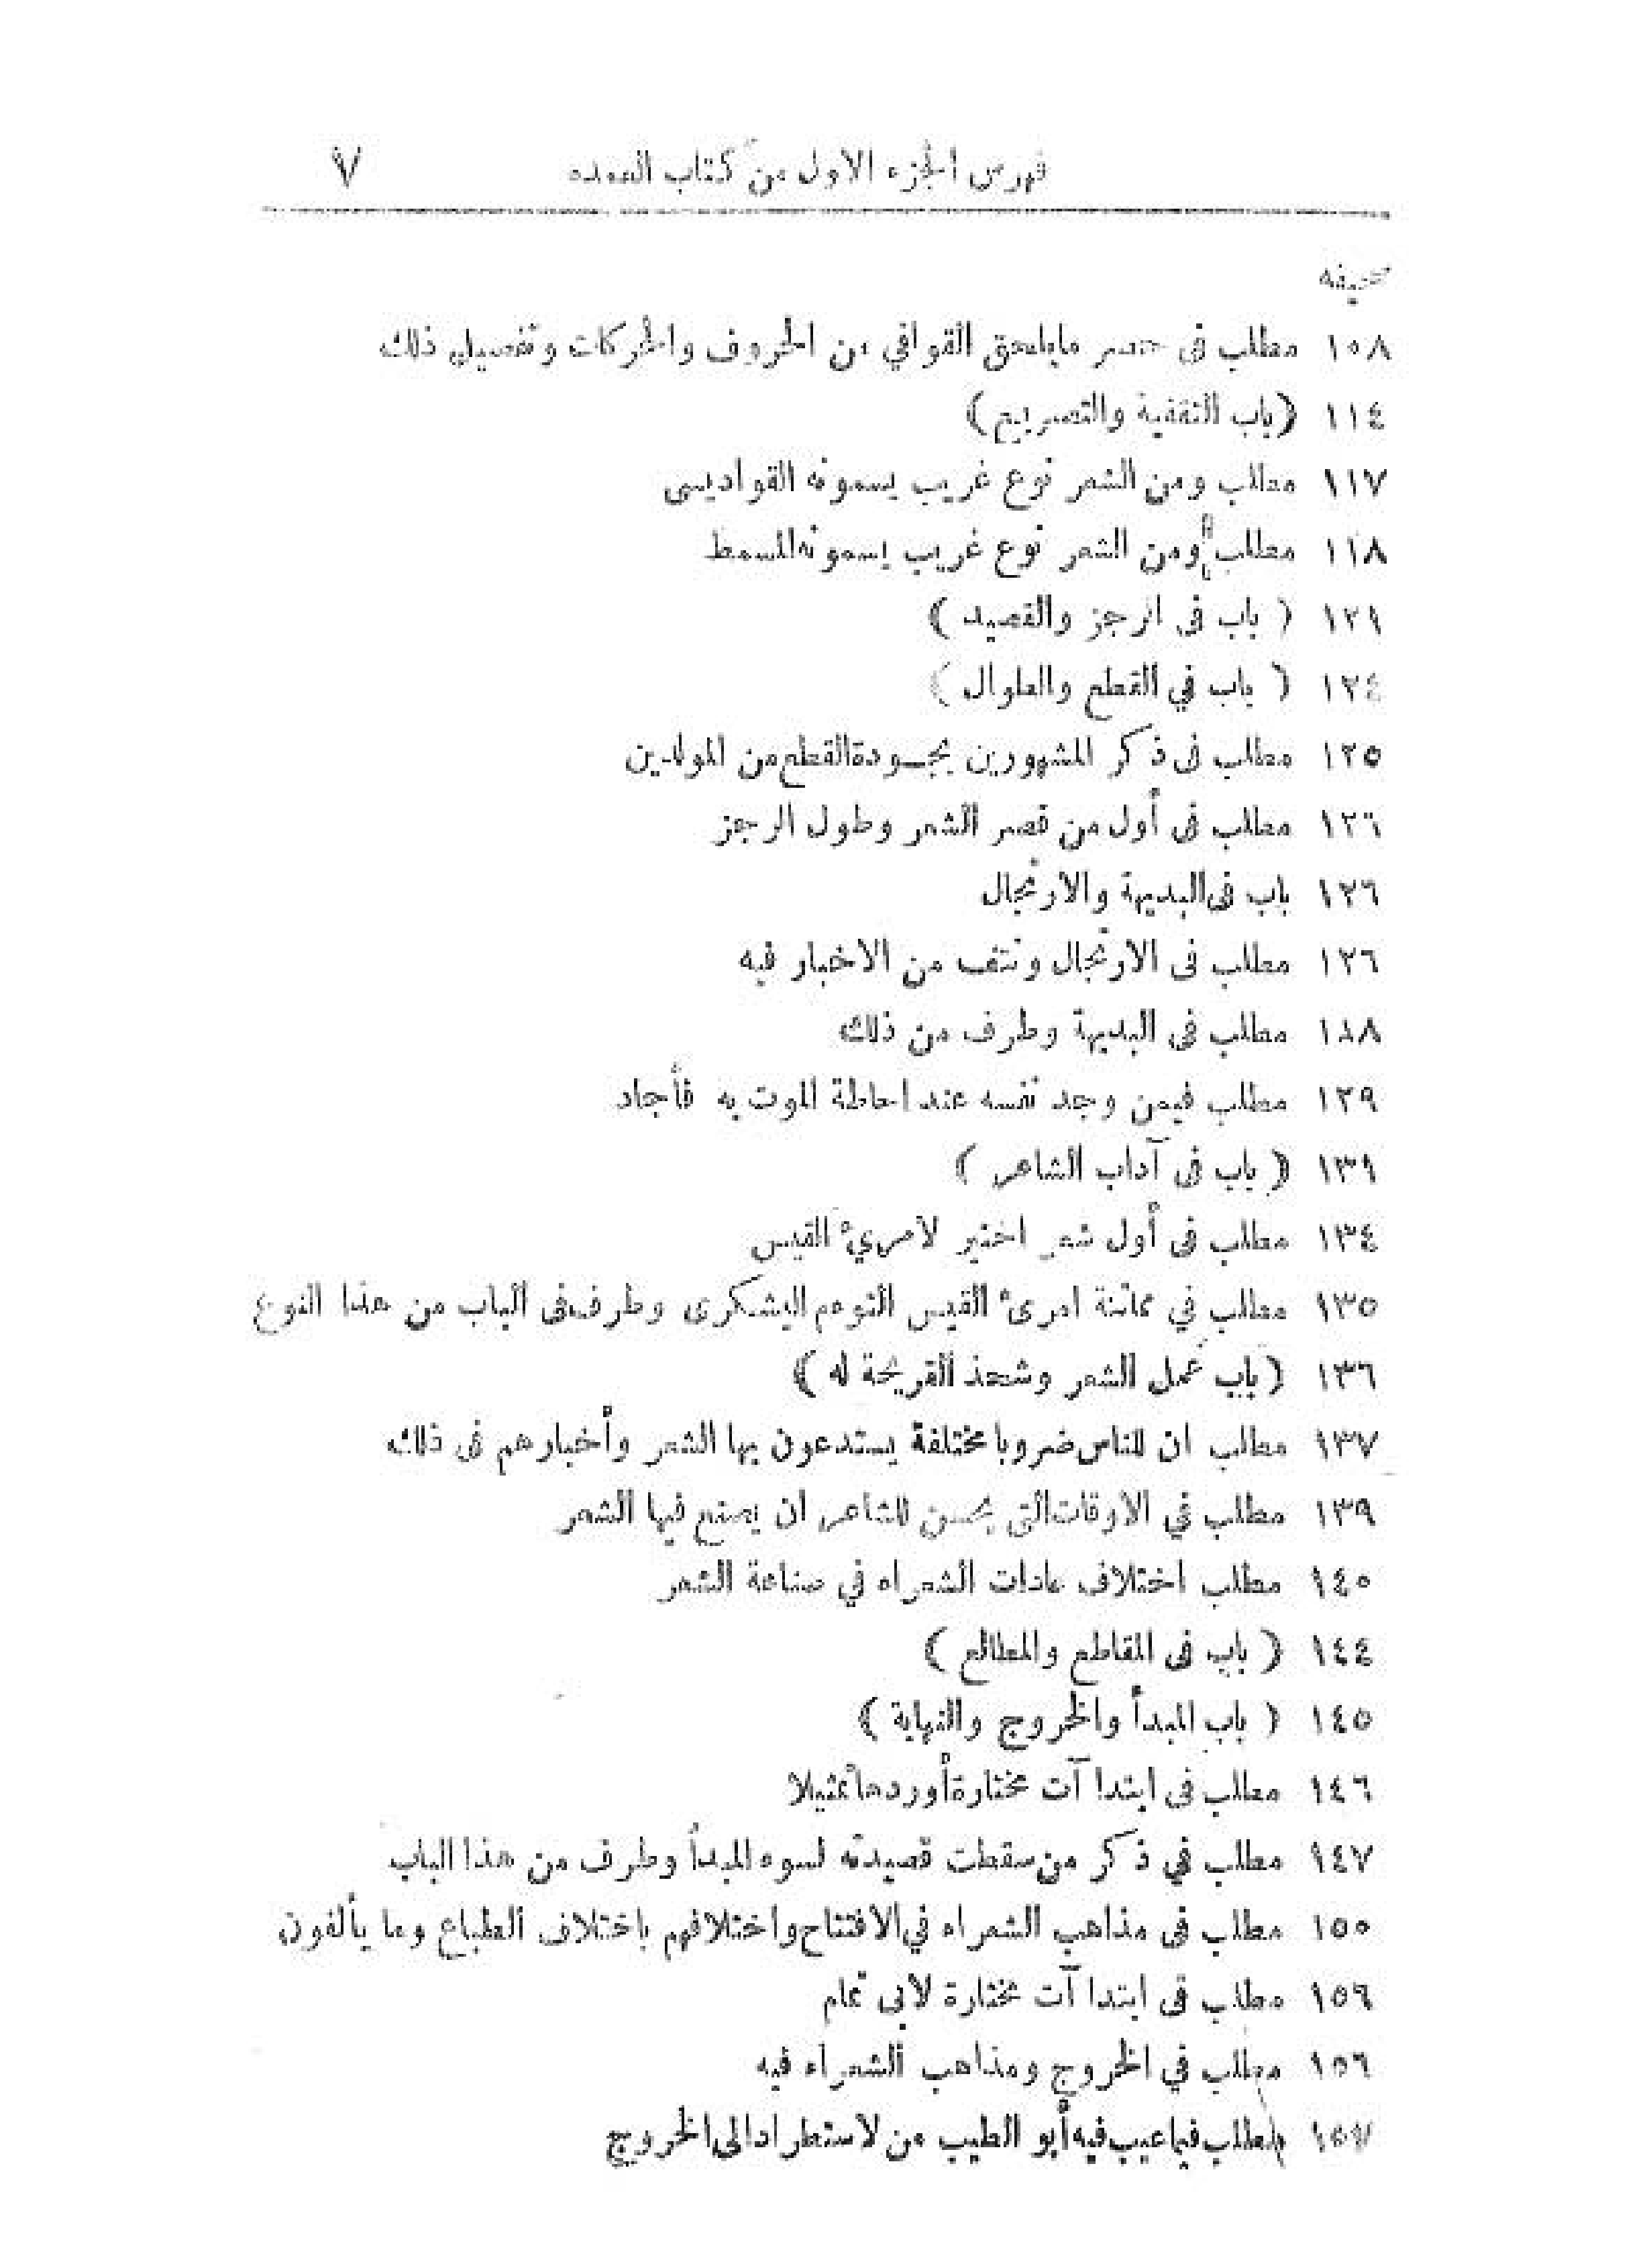 فهرس الجزء الاول من كتاب العمده ٧
صحيفه
١٠٨ مطلب فى حصر مايلحق القوافي من الحروف والحركات وتفصيل ذلك
١١٤ (باب التقفية والتصريع)
١١٧ مطلب ومن الشعر نوع غريب يسمونه القواديسى
١١٨ مطلب ومن الشعر نوع غريب يسمونه المسمط
١٢١ ( باب فى الرجز والقصيد )
١٢٤ ( باب في القطع والطوال )
١٢٥ مطلب فى ذكر المشهورين بجودة القطع من المولدين
١٢٦ مطلب فى أول من قصر الشعر وطول الرجز
١٢٦ باب فى البديهة والارتجال
١٢٦ مطلب فى الارتجال ونتف من الاخبار فيه
مطلب فى البديهة وطرف من ذلك
١٢٩ مطلب فيمن وجد نفسه عند احاطة الموت به فأجاد
١٣١ ( باب فى آداب الشاعر )
١٣٤ مطلب فى أول شعر اختير لامريء القيس
١٣٥ مطلب في مماتنة امرئ القيس التوءم اليشكرى وطرف فى الباب من هذا النوع
١٣٦ ( باب عمل الشعر وشحذ القريحة له )
١٣٧ مطلب ان للناس ضروبا مختلفة يستدعون بها الشعر وأخبارهم فى ذلك
١٣٩ مطلب في الاوقات التى يحسن للشاعر ان يصنع فيها الشعر
١٤٠ مطلب اختلاف عادات الشعراء في صناعة الشعر
١٤٤ ( باب فى المقاطع والمطالع )
١٤٥ ( باب المبدأ والخروج والنهاية )
١٤٦ مطلب فى ابتدا آت مختارة أوردها تمثيلا
١٤٧ مطلب في ذكر من سقطت قصيدته لسوء المبدأ وطرف من هذا الباب
١٥٠ مطلب فى مذاهب الشعراء في الافتتاح واختلافهم باختلاف الطباع وما يألفون
١٥٦ مطلب فى ابتدا آت مختارة لابى تمام
١٥٦ مطلب في الخروج ومذاهب الشعراء فيه
١٥٧ مطلب فيما عيب فيه أبو الطيب من لاستطراد الى الخروج